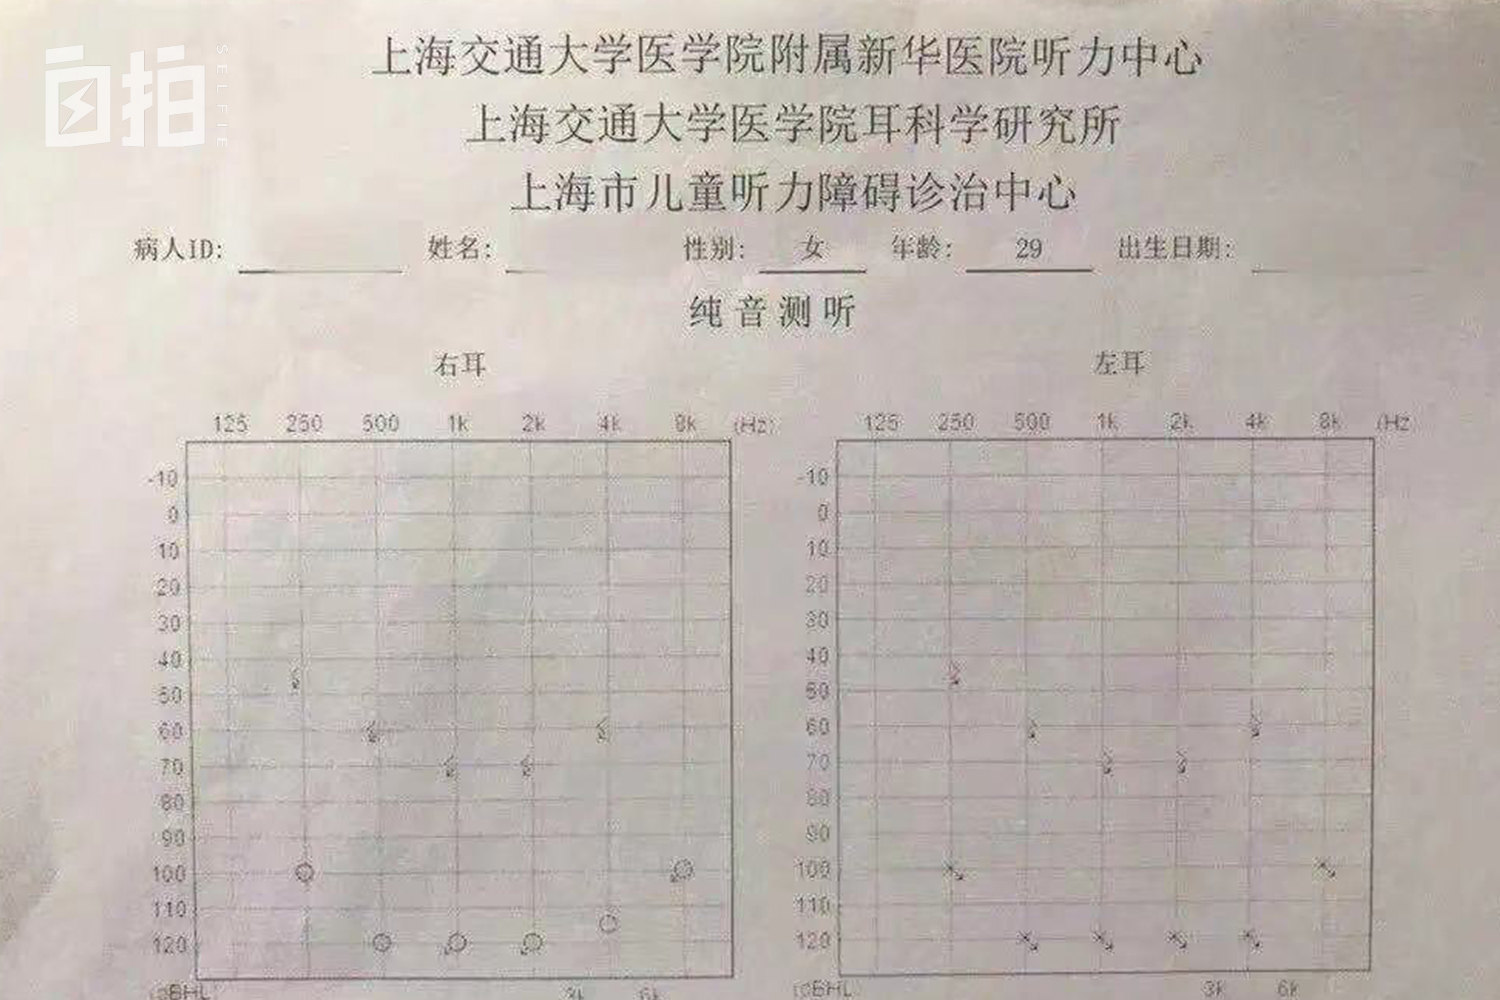 自拍
SELFIE
上海交通大学医学院附属新华医院听力中心
上海交通大学医学院耳科学研究所
上海市儿童听力障碍诊治中心
病人ID: 姓名: 性别: 女 年龄: 29 出生日期:
纯音测听
右耳 左耳
125 250 500 1k 2k 4k 8k (Hz) 125 250 500 1k 2k 4k 8k (Hz
-10 -10
0 0
10 10
20 20
30 30
40 40
50 50
60 60
70 70
80 80
90 90
100 100
110 110
120 120
(dBHL 3k 6k (dBHL 3k 6k